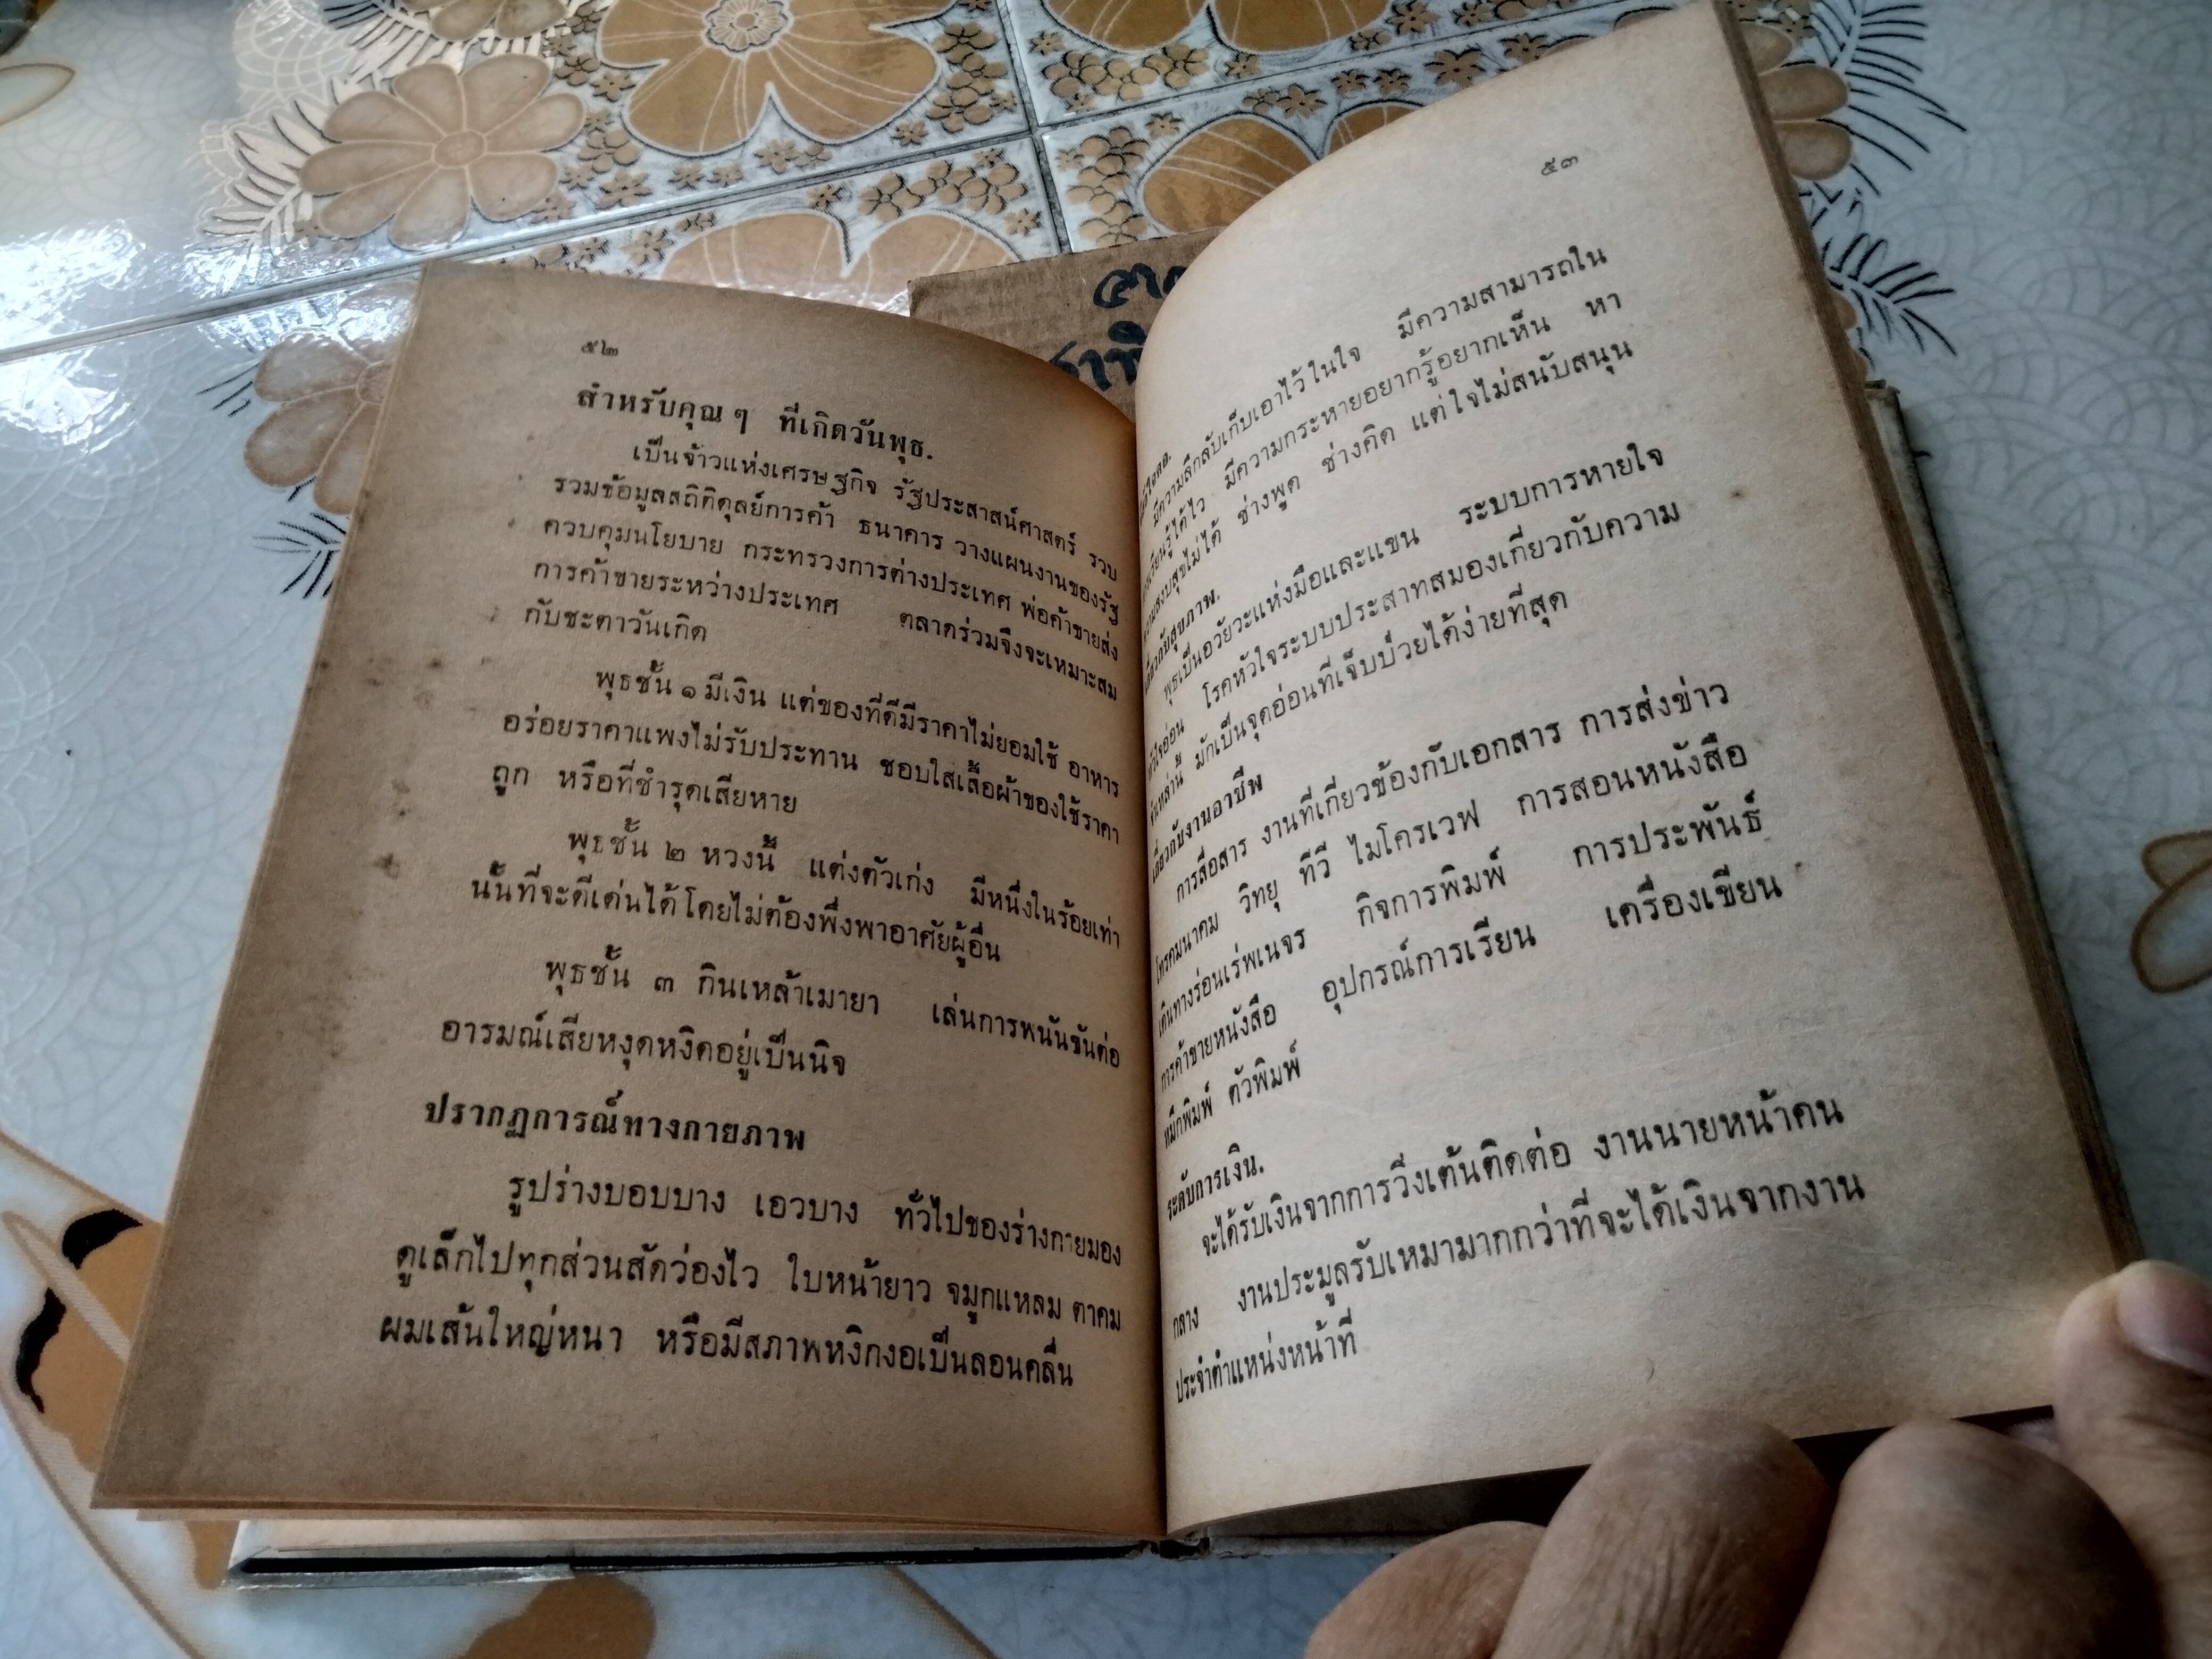 ๕๒
สำหรับคุณ ๆ ที่เกิดวันพุธ.
เป็นจ้าวแห่งเศรษฐกิจ รัฐประสาสน์ศาสตร์ รวบ
รวมข้อมูลสถิติดุลย์การค้า ธนาคาร วางแผนงานของรัฐ
ควบคุมนโยบาย กระทรวงการต่างประเทศ พ่อค้าขายส่ง
การค้าขายระหว่างประเทศ ตลาดร่วมจึงจะเหมาะสม
กับชะตาวันเกิด
พุธชั้น ๑ มีเงิน แต่ของที่ดีมีราคาไม่ยอมใช้ อาหาร
อร่อยราคาแพงไม่รับประทาน ชอบใส่เสื้อผ้าของใช้ราคา
ถูก หรือที่ชำรุดเสียหาย
พุธชั้น ๒ หวงนี้ แต่งตัวเก่ง มีหนึ่งในร้อยเท่า
นั้นที่จะดีเด่นได้โดยไม่ต้องพึ่งพาอาศัยผู้อื่น
พุธชั้น ๓ กินเหล้าเมายา เล่นการพนันขันต่อ
อารมณ์เสียหงุดหงิดอยู่เป็นนิจ
ปรากฏการณ์ทางกายภาพ
รูปร่างบอบบาง เอวบาง ทั่วไปของร่างกายมอง
ดูเล็กไปทุกส่วนสัดว่องไว ใบหน้ายาว จมูกแหลม ตาคม
ผมเส้นใหญ่หนา หรือมีสภาพหงิกงอเป็นลอนคลื่น
๕๓
มีความลึกลับเก็บเอาไว้ในใจ มีความสามารถใน
การเรียนรู้ได้ไว มีความกระหายอยากรู้อยากเห็น หา
ความสงบสุขไม่ได้ ช่างพูด ช่างคิด แต่ใจไม่สนับสนุน
เกี่ยวกับสุขภาพ.
พุธเป็นอวัยวะแห่งมือและแขน ระบบการหายใจ
หัวใจอ่อน โรคหัวใจระบบประสาทสมองเกี่ยวกับความ
มักเป็นจุดอ่อนที่เจ็บป่วยได้ง่ายที่สุด
เกี่ยวกับงานอาชีพ
การสื่อสาร งานที่เกี่ยวข้องกับเอกสาร การส่งข่าว
โทรคมนาคม วิทยุ ทีวี ไมโครเวฟ การสอนหนังสือ
เดินทางร่อนเร่พเนจร กิจการพิมพ์ การประพันธ์
การค้าขายหนังสือ อุปกรณ์การเรียน เครื่องเขียน
หมึกพิมพ์ ตัวพิมพ์
ระดับการเงิน.
จะได้รับเงินจากการวิ่งเต้นติดต่อ งานนายหน้าคน
กลาง งานประมูลรับเหมามากกว่าที่จะได้เงินจากงาน
ประจำตำแหน่งหน้าที่